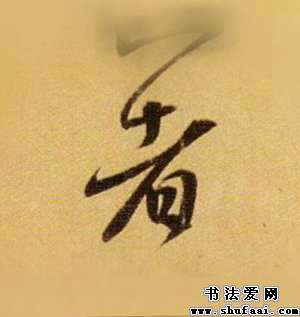 者
书法爱网
www.shufaai.com